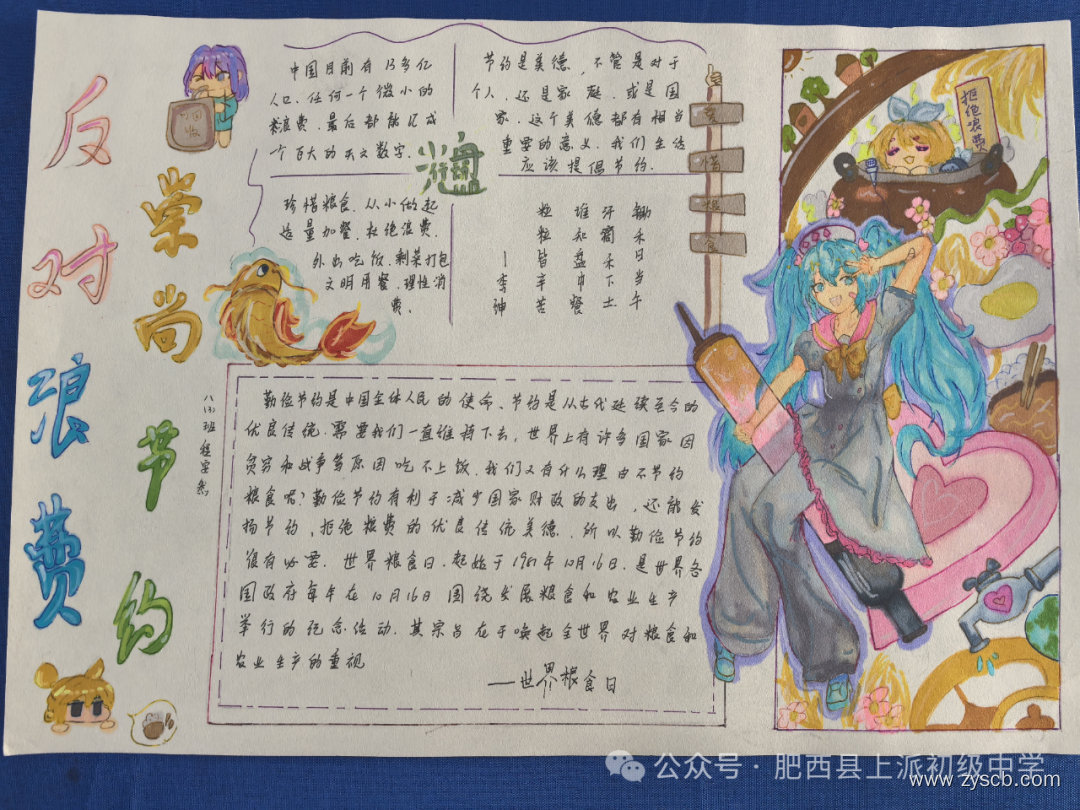 反对浪费
崇尚节约
中国目前有13多亿
人口、任何一个微小的
粮费、最后都能汇成
个百大的天文数字.
节约是美德,不管是对于
个人、还是家庭、或是国
家、这个美德都有相当
重要的意义、我们生活
应该提倡节约.
光盘
爱惜粮食
珍惜粮食、从小做起
适量加餐、杜绝浪费.
外出吃饭、剩菜打包
文明用餐、理性消
费、
锄禾日当午
汗滴禾下土
谁知盘中餐
粒粒皆辛苦
李绅
拒绝浪费
八(3)班
勤俭节约是中国全体人民的使命、节约是从古代延续至今的
优良传统.需要我们一直维持下去,世界上有许多国家因
贫穷和战争等原因吃不上饭.我们又有什么理由不节约
粮食呢?勤俭节约有利于减少国家财政的支出,还能发
扬节约、拒绝粮费的优良传统美德.所以勤俭节约
很有必要.世界粮食日.起始于1981年10月16日.是世界各
国政府每年在10月16日围绕发展粮食和农业生产
举行的纪念活动.其宗旨在于唤起全世界对粮食和
农业生产的重视
——世界粮食日
公众号·肥西县上派初级中学
www.zyscb.com